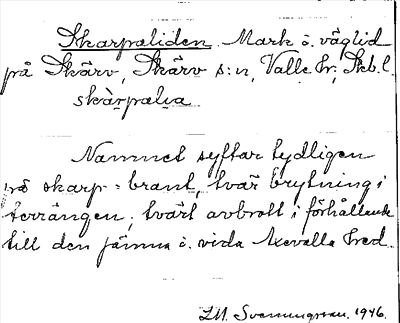 Skarpaliden. Mark o. väglid
på Skärv, Skärv s:n, Valle hr; Skb. l.
skàrpalia
Namnet syftar tydligen
på skarp = brant, tvär brytning i
terrängen; tvärt avbrott i förhållande
till den jämna o. vida Axevalla hed.
J.M. Svenningsson. 1946.